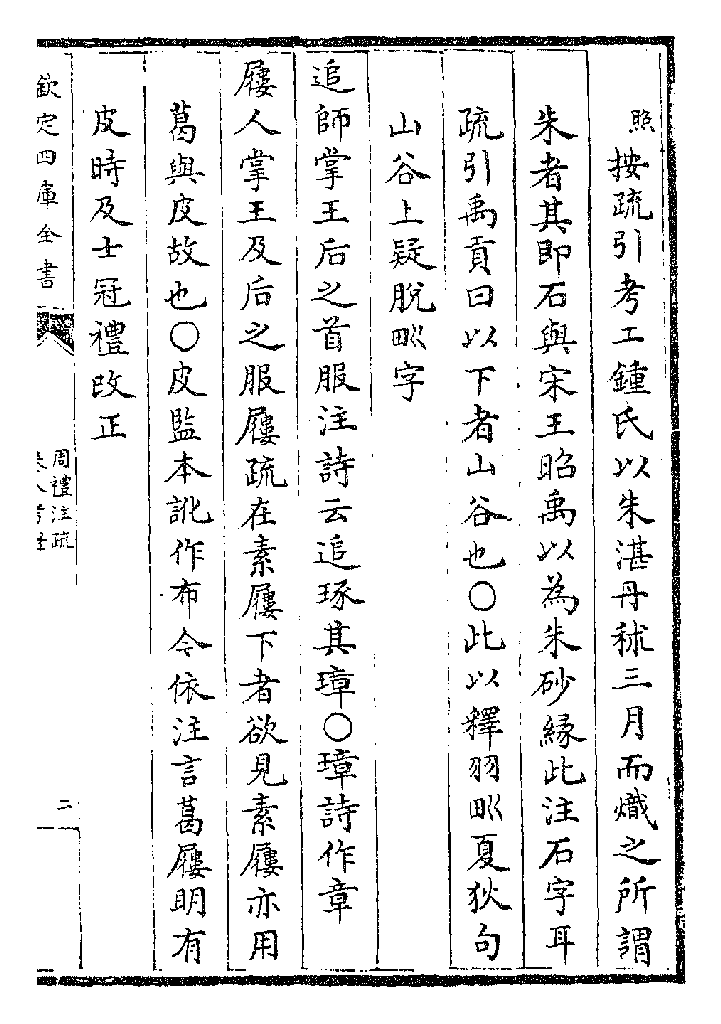 照按疏引考工鍾氏以朱湛丹秫三月而熾之所謂
朱者其即石與宋王昭禹以為朱砂緣此注石字耳
疏引禹貢曰以下者山谷也○此以釋羽畎夏狄句
山谷上疑脫畎字
追師掌王后之首服注詩云追琢其璋○璋詩作章
屨人掌王及后之服屨疏在素屨下者欲見素屨亦用
葛與皮故也○皮監本訛作布令依注言葛屨明有
皮時及士冠禮改正
欽定四庫全書
周禮注疏
二